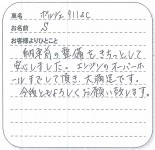 車名 ポルシェ911SC
お名前 S
お客様よりひとこと
納車前の整備をきちっとして
安心しました。エンジンのオーバーホ
ールまでして頂き、大満足です。
今後ともよろしくお願い致します。